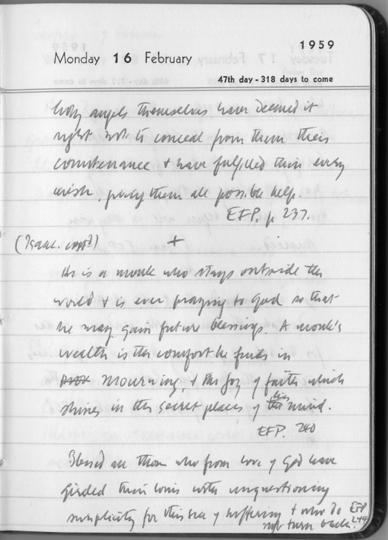 1959
Monday 16 February
47th day - 318 days to come
holy angels themselves have deemed it
right not to conceal from them their
countenance & have fulfilled their every
wish, giving them all possible help.
EFP. p 237.
(Isaac. cont'd) +
He is a monk who stays outside the
world & is ever praying to God so that
he may gain future blessings. A monk's
wealth is the comfort he finds in
mourning, & the joy of faith which
shines in the secret places of his mind.
EFP. 240
Blessed are those who from love of God have
girded their loins with unquestioning
simplicity for this sea of suffering & who do
not turn back. EFP 244